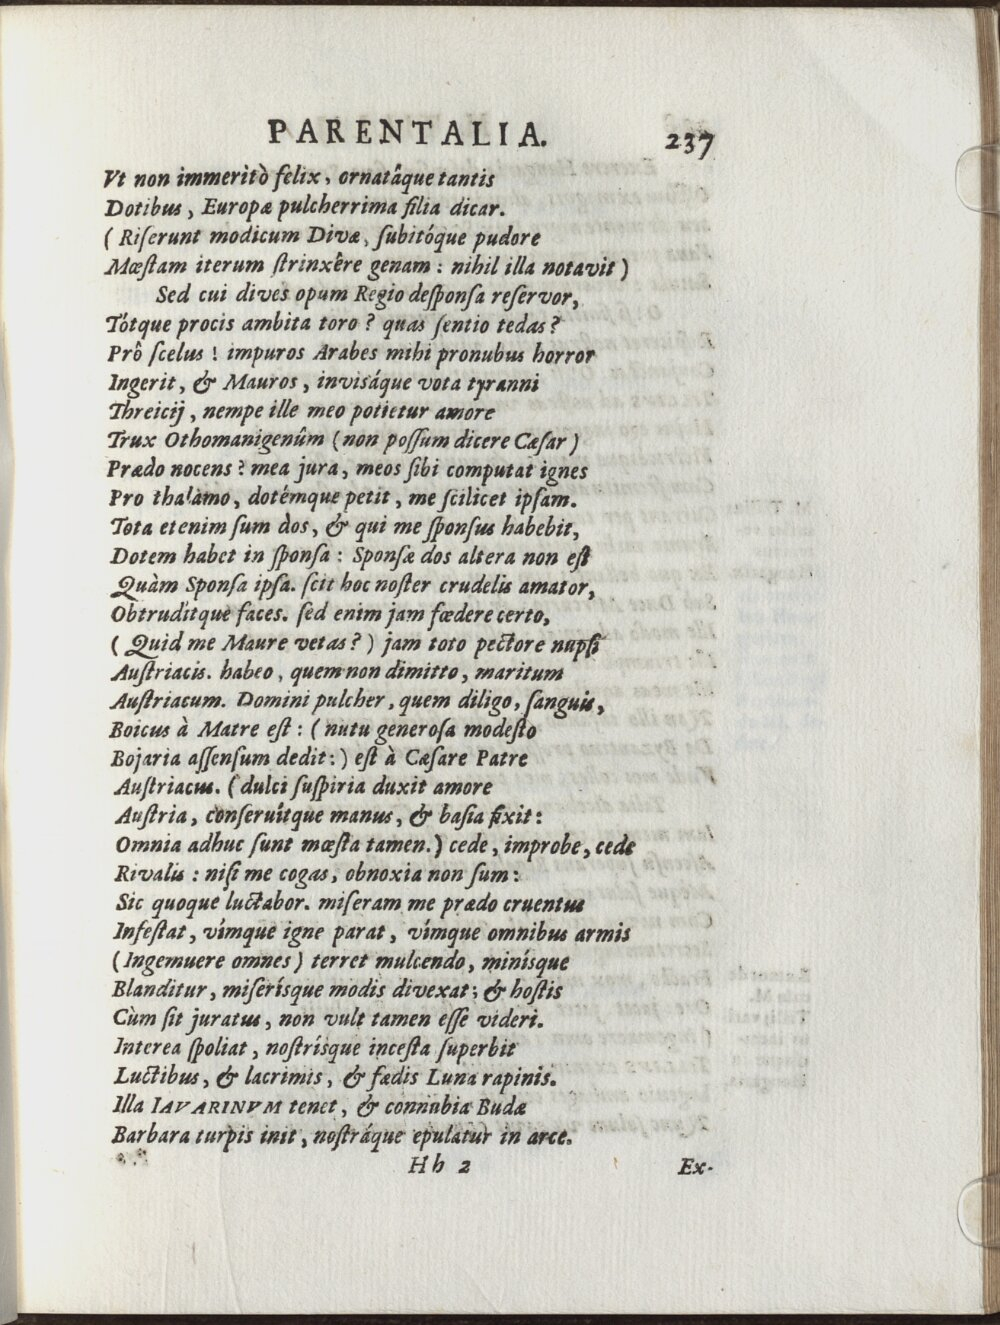 PARENTALIA. 237
Vt non immeritò felix, ornatâque tantis
Dotibus, Europæ pulcherrima filia dicar.
( Riserunt modicum Divæ, subitóque pudore
Mœstam iterum strinxêre genam : nihil illa notavit )
Sed cui dives opum Regio desponsa reservor,
Tótque procis ambita toro ? quas sentio tedas ?
Prô scelus ! impuros Arabes mihi pronubus horror
Ingerit, & Mauros, invisáque vota tyranni
Threicij, nempe ille meo potietur amore
Trux Othomanigenûm (non possum dicere Cæsar )
Prædo nocens ? mea jura, meos sibi computat ignes
Pro thalamo, dotémque petit, me scilicet ipsam.
Tota etenim sum dos, & qui me sponsus habebit,
Dotem habet in sponsa : Sponsæ dos altera non est
Quàm Sponsa ipsa. scit hoc noster crudelis amator,
Obtruditque faces. sed enim jam fœdere certo,
( Quid me Maure vetas ? ) jam toto pectore nupsi
Austriacis. habeo, quem non dimitto, maritum
Austriacum. Domini pulcher, quem diligo, sanguis,
Boicus à Matre est : ( nutu generosa modesto
Bojaria assensum dedit : ) est à Cæsare Patre
Austriacus. ( dulci suspiria duxit amore
Austria, conseruîtque manus, & basia fixit :
Omnia adhuc sunt mœsta tamen. ) cede, improbe, cede
Rivalis : nisi me cogas, obnoxia non sum :
Sic quoque luctabor. miseram me prædo cruentus
Infestat, vímque igne parat, vímque omnibus armis
( Ingemuere omnes ) terret mulcendo, minísque
Blanditur, miserísque modis divexat ; & hostis
Cùm sit juratus, non vult tamen esse videri.
Interea spoliat, nostrísque incesta superbit
Luctibus, & lacrimis, & fædis Luna rapinis.
Illa IAVARINVM tenet, & connubia Budæ
Barbara turpis init, nostráque epulatur in arce.
Hh 2 Ex-